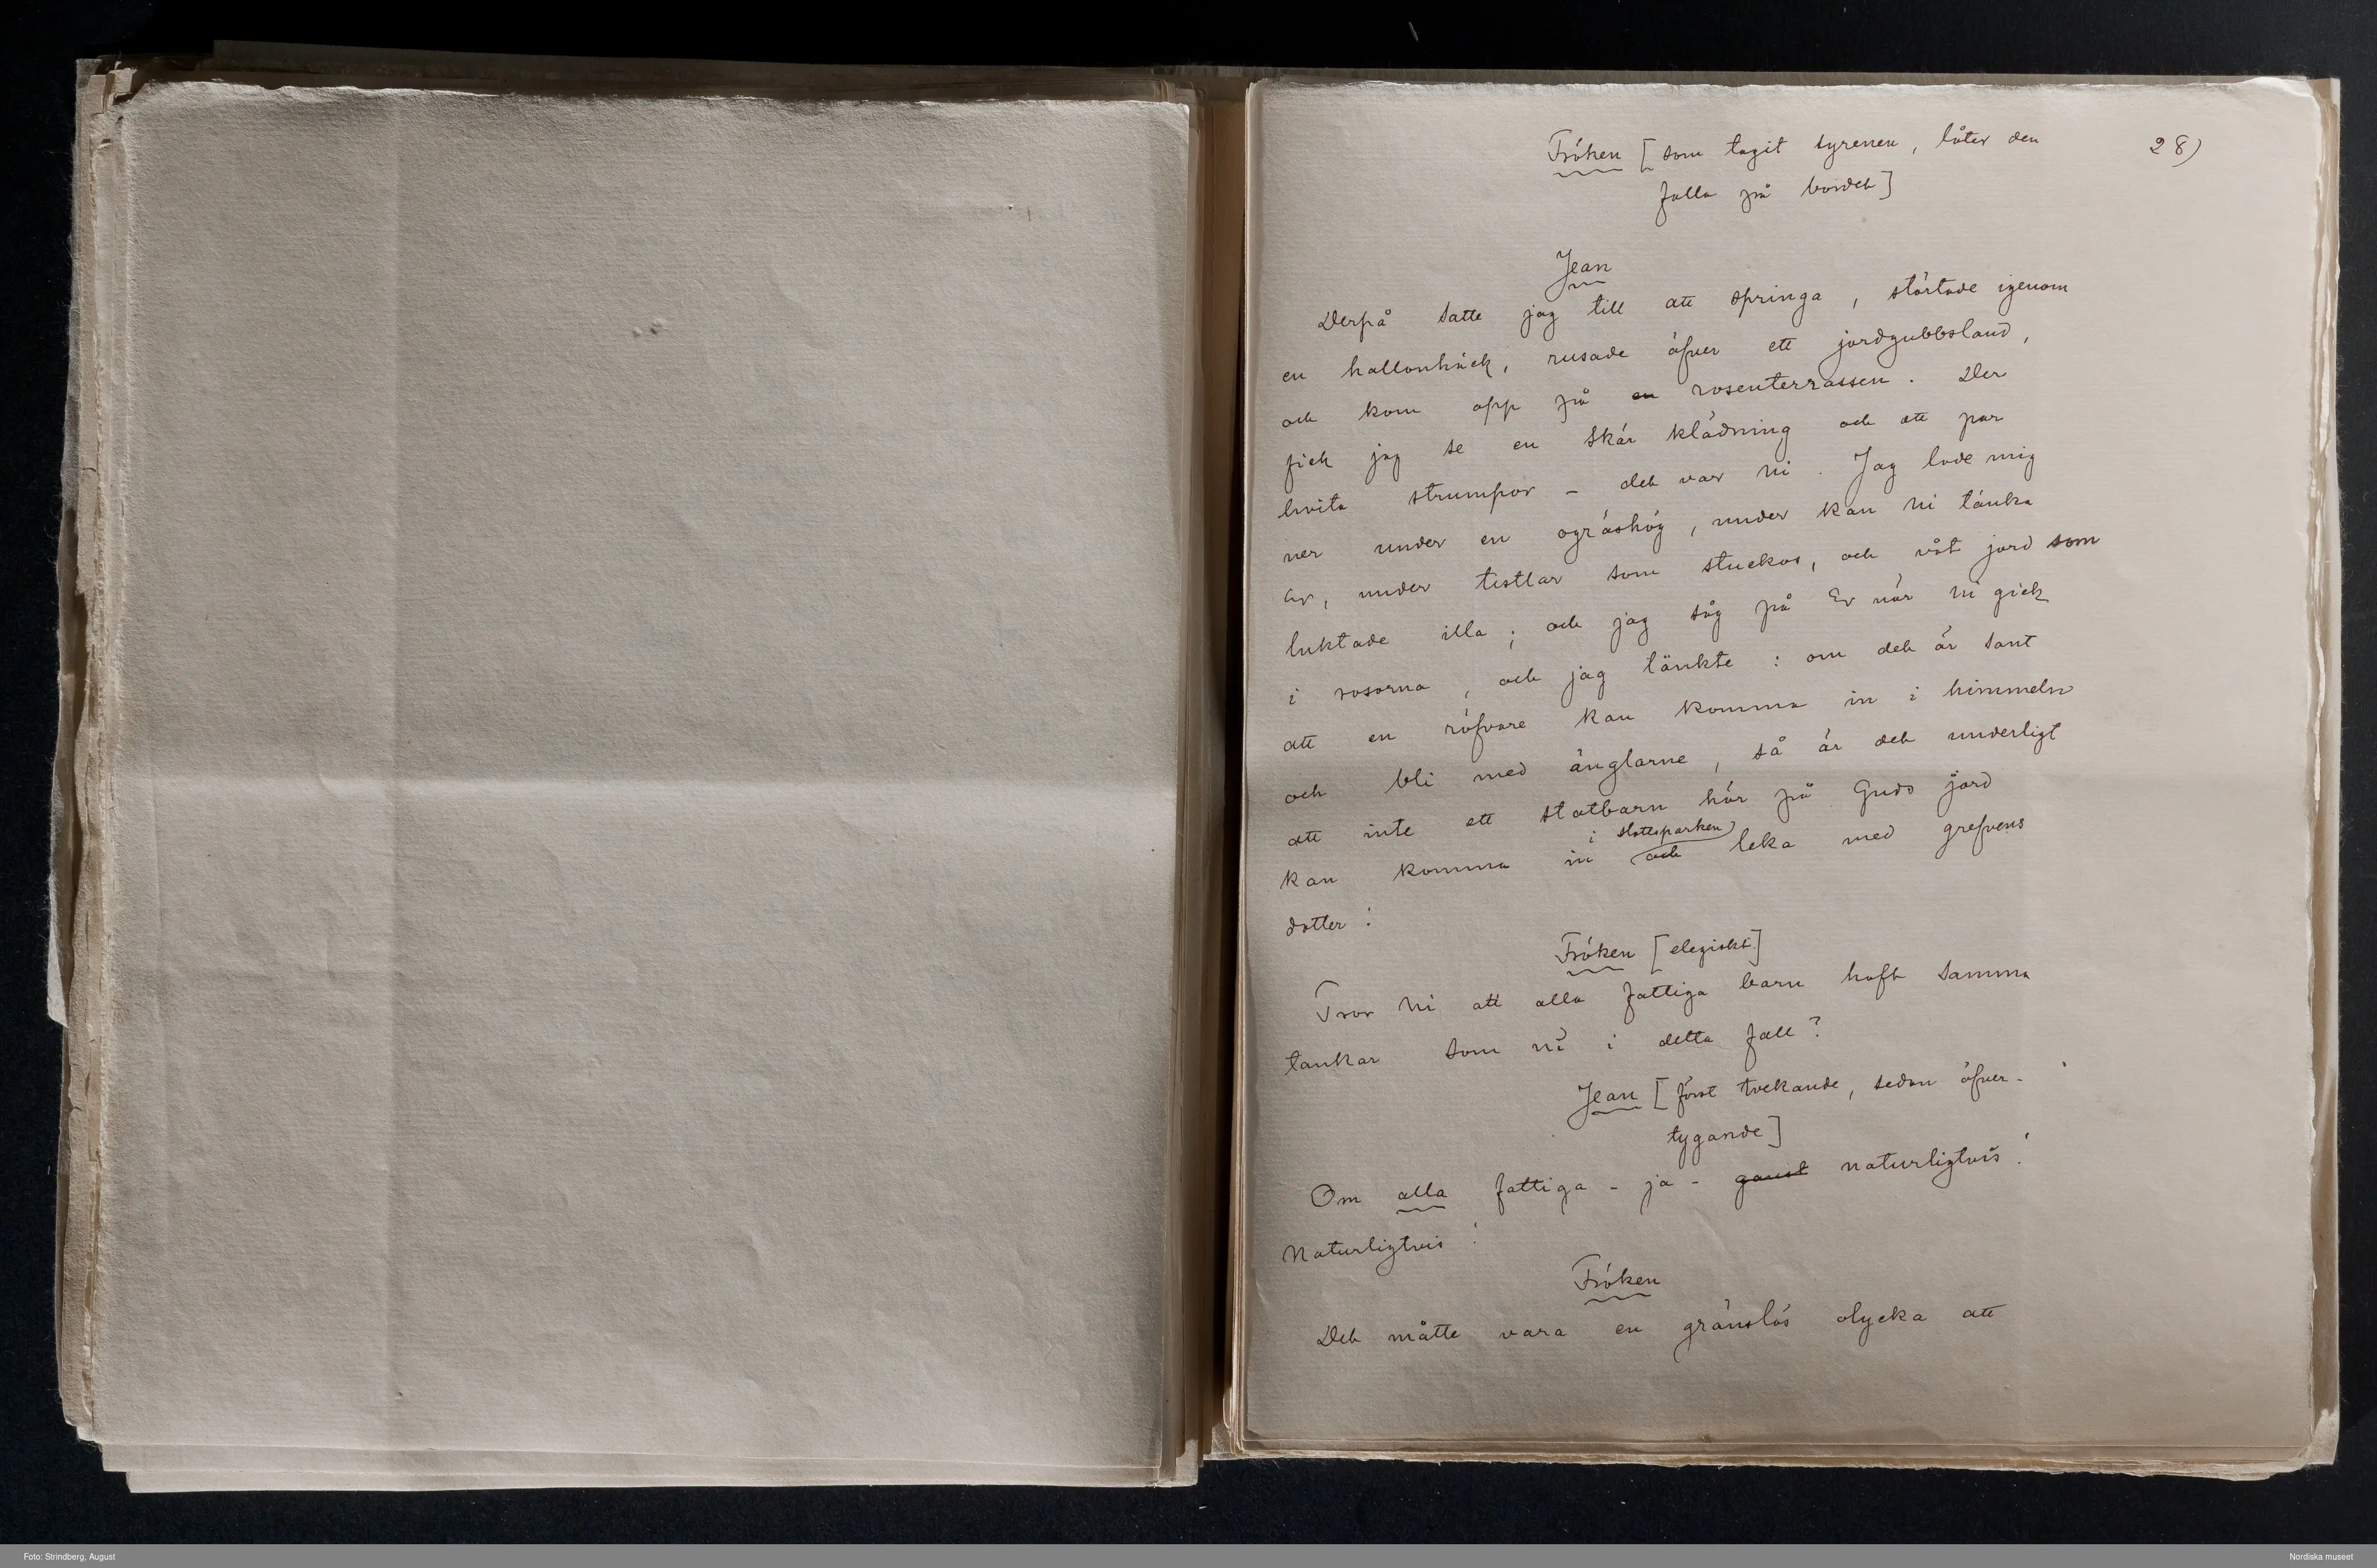 Fröken [som tagit syrenen, låter den
28)
falla på bordet]
Jean
Derpå satte jag till att springa, störtade igenom
en hallonhäck, rusade öfver ett jordgubbsland,
och kom opp på en rosenterrassen. Der
fick jag se en skär klädning och ett par
hvita strumpor – det var ni. Jag lade mig
ner under en ogräshög, under kan ni tänka
er, under tistlar som stuckos, och våt jord som
luktade illa; och jag såg på Er när ni gick
i rosorna, och jag tänkte: om det är sant
att en röfvare kan komma in i himmeln
och bli med änglarne, så är det underligt
att inte ett statbarn här på Guds jord
i slottsparken
kan komma in och leka med grefvens
dotter!
Fröken [elegiskt]
Tror ni att alla fattiga barn haft samma
tankar som ni i detta fall?
Jean [först tvekande, sedan öfver-
tygande]
Om alla fattiga – ja – naturligtvis!
Naturligtvis!
Fröken
Det måtte vara en gränslös olycka att
Foto: Strindberg, August
Nordiska museet